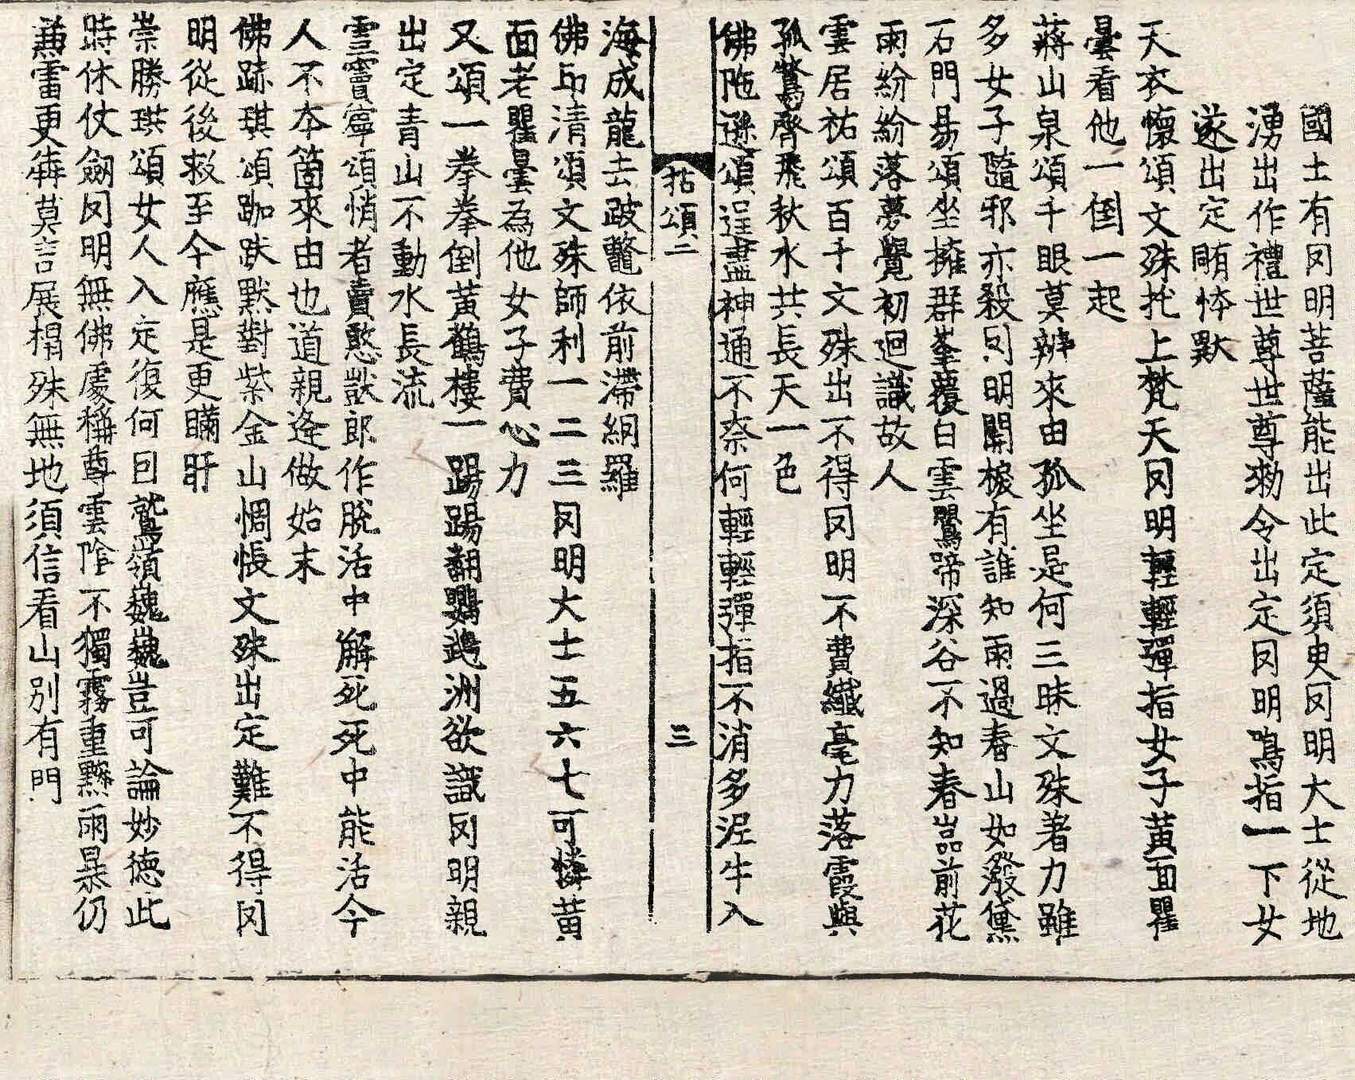 國土有罔明菩薩能出此定須臾罔明大士從地
湧出作禮世尊世尊勑令出定罔明鳴指一下女
遂出定師休默
天衣懷頌文殊托上梵天罔明輕輕彈指女子黃面瞿
曇看他一倒一起
蔣山泉頌千眼莫辨來由孤坐是何三昧文殊著力雖
多女子隨邪亦殺罔明關棙有誰知雨過春山如潑黛
石門易頌坐擁群峯覆白雲鸎啼深谷不知春嵓前花
雨紛紛落夢覺初迴識故人
雲居祐頌百千文殊出不得罔明不費纖毫力落霞與
孤鶩齊飛秋水共長天一色
佛陁遜頌逞盡神通不柰何輕輕彈指不消多泥牛入
拈頌二
三
海成龍去跛鼈依前滯網羅
佛印清頌文殊師利一二三罔明大士五六七可憐黃
面老瞿曇為他女子費心力
又頌一拳拳倒黃鶴樓一踢踢翻鸚鵡洲欲識罔明親
出定青山不動水長流
雲竇寧頌悄者賣憨獃郎作脫活中解死死中能活今
人不夲箇來由也道親逢做始末
佛跡琪頌跏趺默對紫金山惆悵文殊出定難不得罔
明從後救至今應是更瞞盱
崇勝珙頌女人入定復何曰鷲嶺巍巍豈可論妙德此
時休仗劒罔明無佛處稱尊雲陰不獨霧重黲雨暴仍
兼雷更犇莫言展榻殊無地須信看山別有門